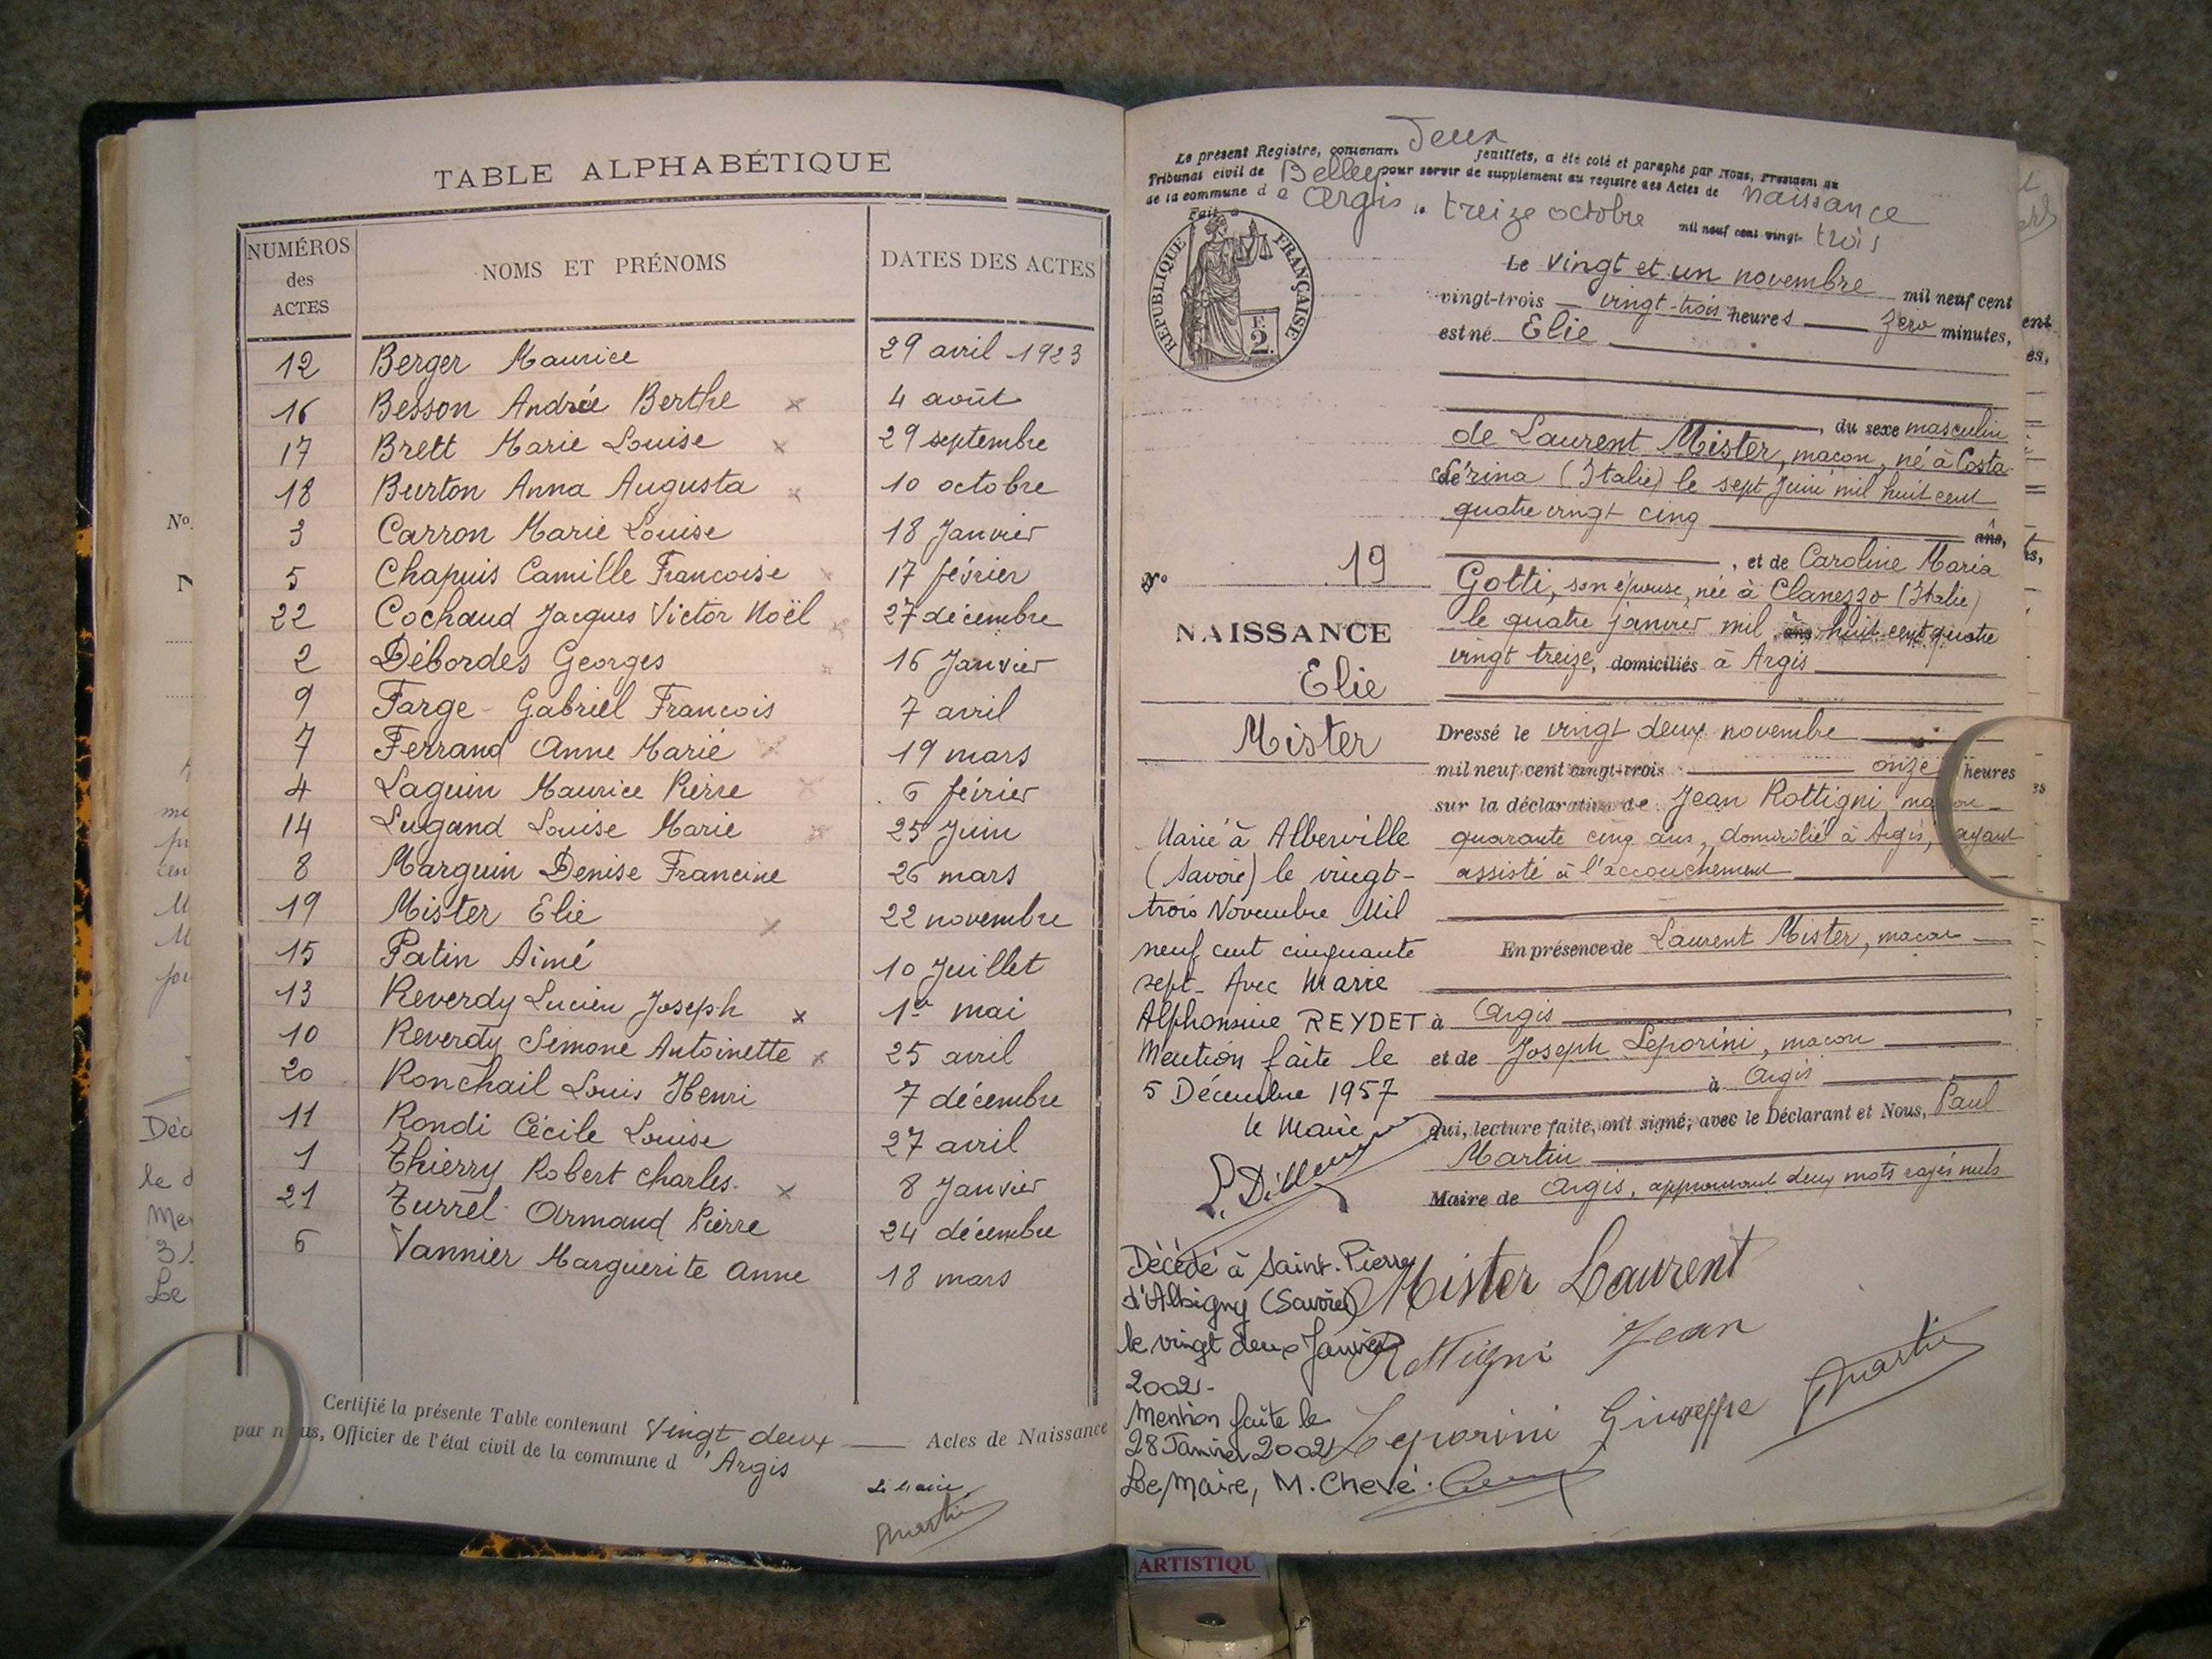 TABLE ALPHABÉTIQUE
NUMÉROS des ACTES NOMS ET PRÉNOMS DATES DES ACTES
12 Berger Maurice 29 avril 1923
16 Besson Andrée Berthe x 4 août
17 Brett Marie Louise x 29 septembre
18 Burton Anna Augusta x 10 octobre
3 Carron Marie Louise 18 Janvier
5 Chapuis Camille Francoise x 17 février
22 Cochaud Jacques Victor Noël x 27 décembre
2 Débordes Georges x 16 Janvier
9 Farge Gabriel Francois 7 avril
7 Ferrand Anne Marie x 19 mars
4 Laguin Maurice Pierre x 6 février
14 Lugand Louise Marie x 25 Juin
8 Marguin Denise Francine 26 mars
19 Mister Elie x 22 novembre
15 Patin Aimé 10 Juillet
13 Reverdy Lucien Joseph x 1er mai
10 Reverdy Simone Antoinette x 25 avril
20 Ronchail Louis Henri 7 décembre
11 Rondi Cécile Louise 27 avril
1 Thierry Robert Charles x 8 Janvier
21 Turrel Armand Pierre 24 décembre
6 Vannier Marguerite Anne 18 mars
Certifié la présente Table contenant Vingt deux Actes de Naissance
par nous, Officier de l'état civil de la commune d'Argis
Le Maire,
Martin
Le présent Registre, contenant Deux feuillets, a été coté et paraphé par Nous, Président du
Tribunal civil de Belley pour servir de supplément au registre des Actes de Naissance
de la commune de Argis le treize octobre mil neuf cent vingt-trois
Fait à
RÉPUBLIQUE FRANÇAISE
2
Le vingt et un novembre mil neuf cent
vingt-trois vingt-trois heures zéro minutes,
est né Elie
, du sexe masculin
de Laurent Mister, macon, né à Costa
Sérina (Italie) le sept Juin mil huit cent
quatre vingt cinq ans,
, et de Caroline Maria
Gotti, son épouse, née à Clanezzo (Italie)
le quatre janvier mil ans huit cent quatre
vingt treize, domiciliés à Argis
No 19
NAISSANCE
Elie
Mister
Dressé le vingt deux novembre
mil neuf cent vingt-trois onze heures
sur la déclaration de Jean Rottigni macon
quarante cinq ans, domicilié à Argis, ayant
assisté à l'accouchement
En présence de Laurent Mister, macon
à Argis
et de Joseph Leporini, macon
à Argis
qui, lecture faite, ont signé, avec le Déclarant et Nous, Paul
Martin
Maire de Argis, approuvant deux mots rayés nuls
Marié à Alberville
(Savoie) le vingt-
trois Novembre Mil
neuf cent cinquante
sept. Avec Marie
Alphonsine REYDET
Mention faite le
5 Décembre 1957
le Maire
Décédé à Saint-Pierre
d'Albigny (Savoie)
le vingt deux Janvier
2002.
Mention faite le
28 Janvier 2002
Le Maire, M. Chevé.
Mister Laurent
Rottigni Jean
Leporini Giuseppe
Martin
ARTISTIQU